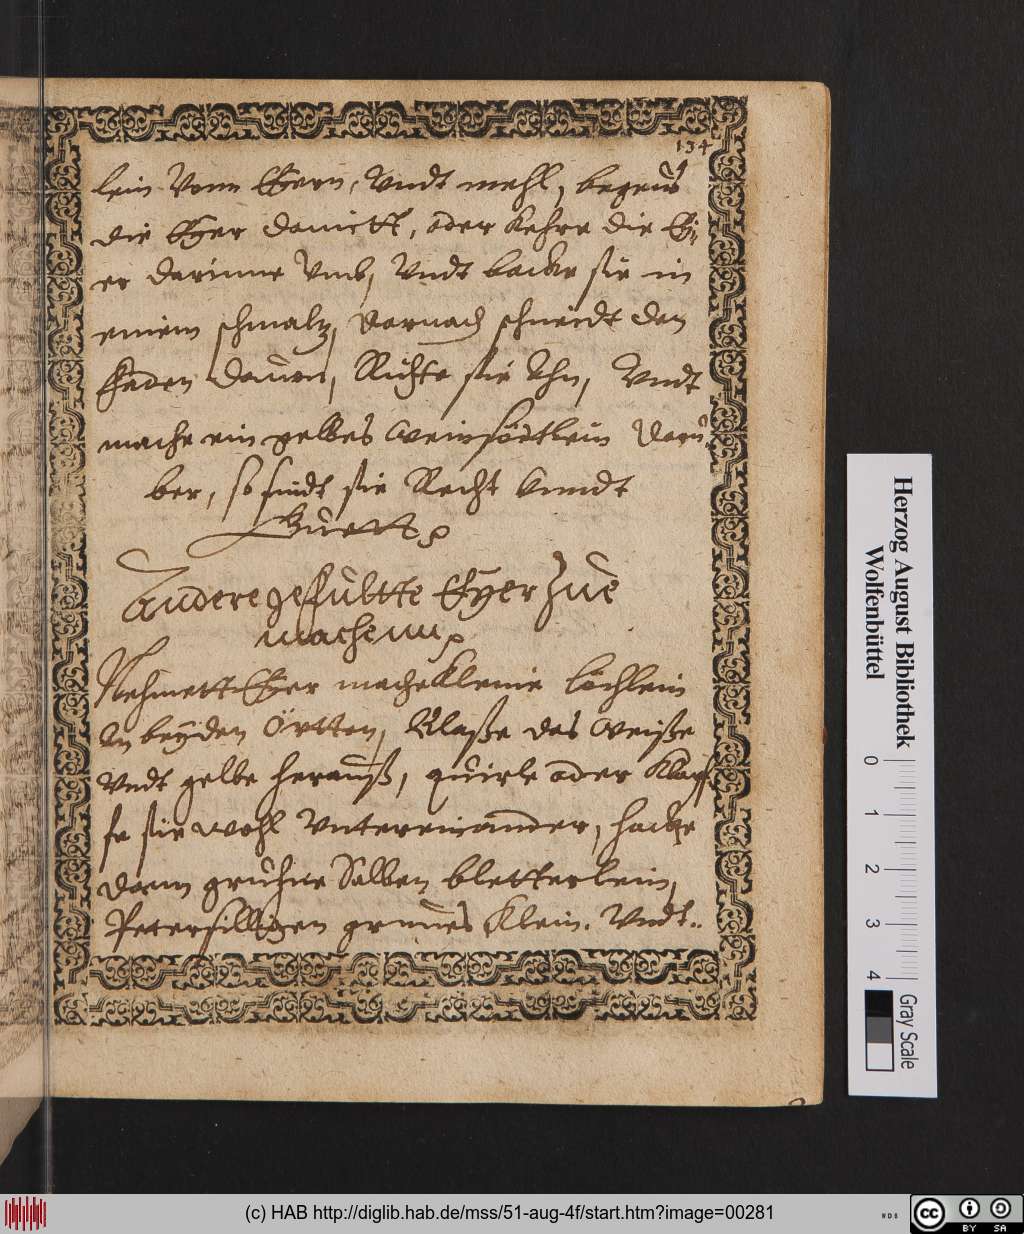 134
lein Vonn Eyern, Vndt mehl, begeus
die Eyer damitt, oder Kehre die Ey„
er darinne Vmb, Vndt backe sie in
einem schmalz, darnach schneidt den
faden davon, Richte sie Ahn, Vndt
mache ein gelbes weinsödtlein darü„
ber, so sindt sie Recht Vnndt
Guett
Andere gefultte Eyer zue
machenn
Nehmett Eyer mache Kleine löchlein
An beyden Örtten, Blaße das weiße
Vndt gelbe herauß, quirle oder Klopf„
fe sie wohl Vntereinander, hacke
dann gruhne Salben bletterlein,
Petersilligen grunes Klein. Vndt..
Herzog August Bibliothek
Wolfenbüttel
0 1 2 3 4
Gray Scale
(c) HAB http://diglib.hab.de/mss/51-aug-4f/start.htm?image=00281
WDB
cc BY SA